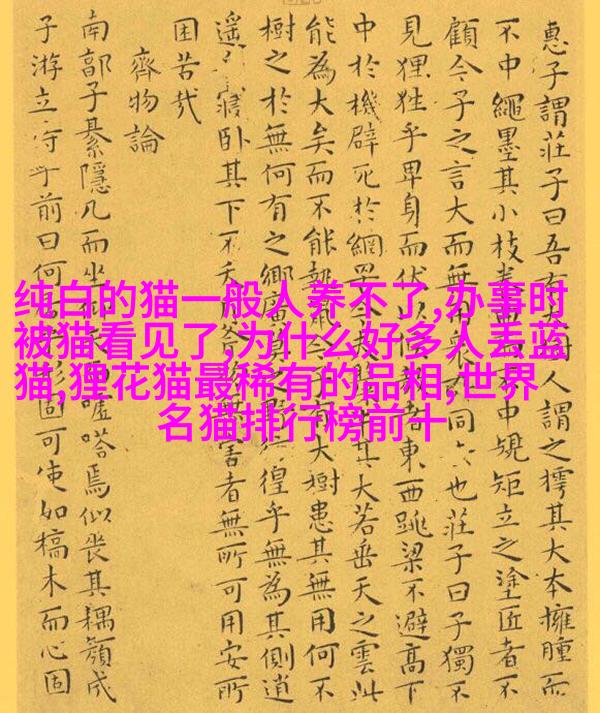 纯白的猫一般人养不了,办事时
被猫看见了,为什么好多人丢蓝
猫,狸花猫最稀有的品相,世界
名猫排行榜前十
惠子謂莊子曰吾有人謂之樗其大本擁腫而
不中繩墨其小枝中規矩立之塗匠者不
顧今子之言大而無同也莊子曰子獨不
見狸狌乎卑身而伏者東西跳梁不避高下
中於機辟死於網其大若垂天之雲此
能為大矣而不能執有大樹患其無用何不
樹之於無何有之鄉徨乎無為其側逍
遙寢卧其下不害者無所可用安所
困苦哉
齊物論
南郭子綦隱几而坐噓嗒焉似喪其耦顏成
子游立侍乎前曰何固可使如槁木而心固